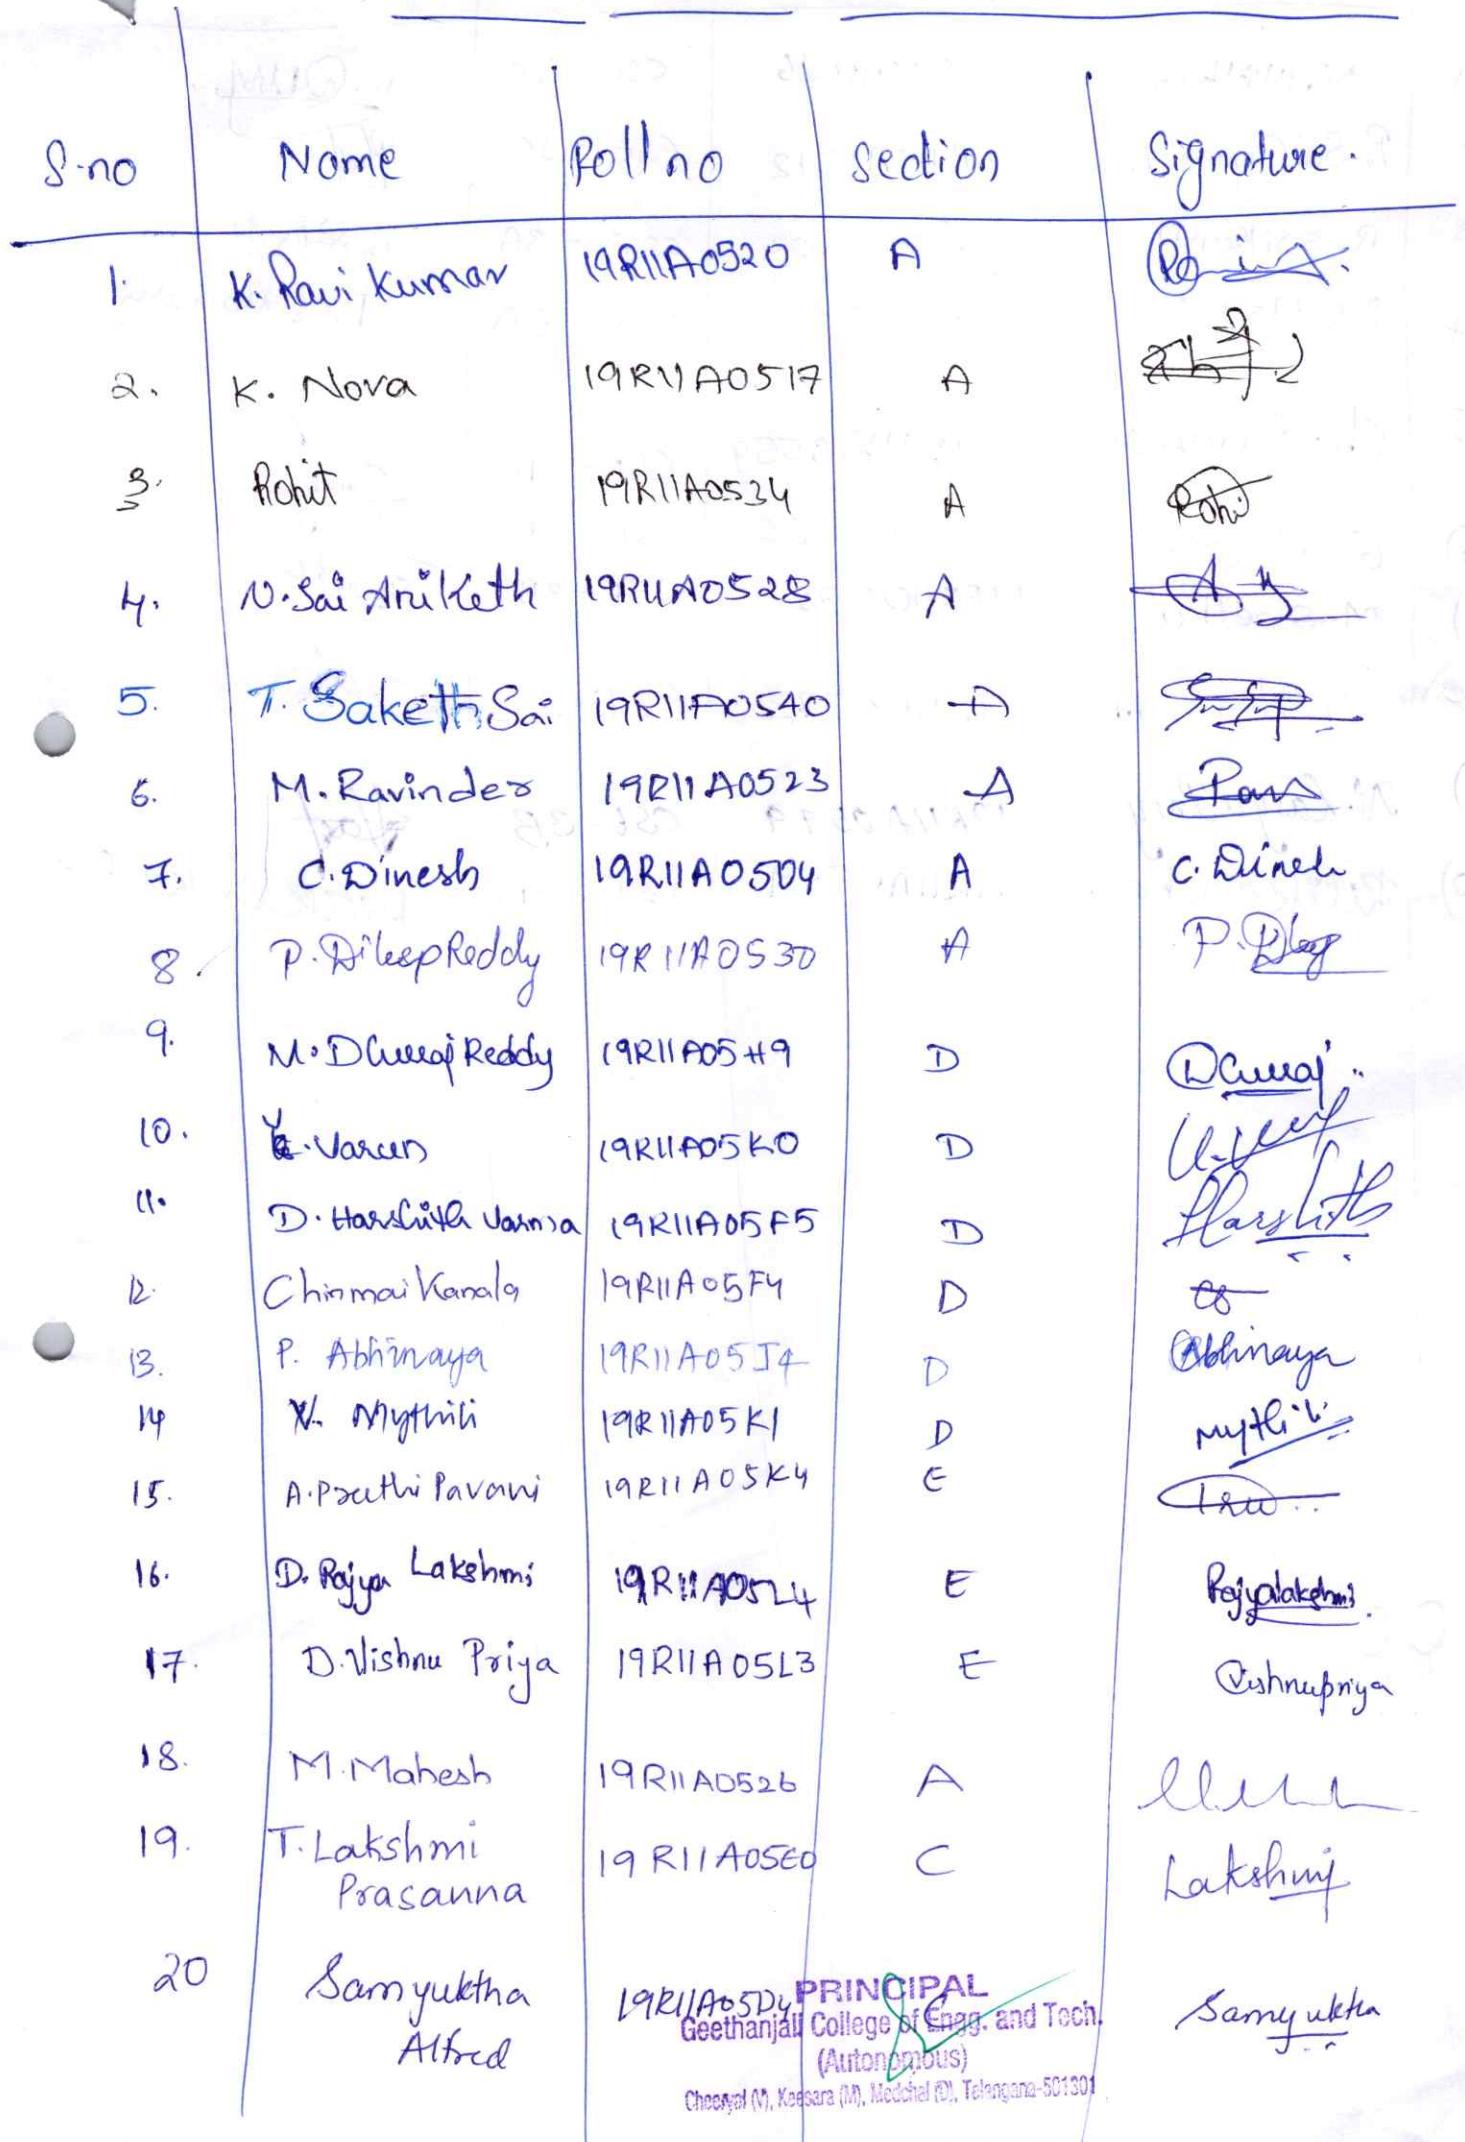 S.no Name Roll no Section Signature.
1. K. Ravi Kumar 19R11A0520 A
2. K. Nova 19R11A0517 A
3. Rohit 19R11A0534 A Rohi
4. N. Sai Aniketh 19R11A0528 A
5. T. Saketh Sai 19R11A0540 A
6. M. Ravinder 19R11A0523 A
7. C. Dinesh 19R11A0504 A C. Dinesh
8. P. Dileep Reddy 19R11A0530 A
9. M. Dhuraj Reddy 19R11A05H9 D Dhuraj
10. Varun 19R11A05K0 D
11. D. Harshith Varma 19R11A05F5 D Harshith
12. Chinmai Kanala 19R11A05F4 D
13. P. Abhinaya 19R11A05J4 D Abhinaya
14 V. Mythili 19R11A05K1 D Mythili
15. A. Pruthi Pavani 19R11A05K4 E
16. D. Rajya Lakshmi 19R11A05L4 E Rajyalakshmi.
17. D. Vishnu Priya 19R11A05L3 E Vishnupriya
18. M. Mahesh 19R11A0526 A
19. T. Lakshmi 19R11A05E0 C Lakshmi
Prasanna
20 Samyuktha 19R11A05D4 C Samyuktha
Alfred
PRINCIPAL
Geethanjali College of Engg. and Tech.
(Autonomous)
Cheeryal (V), Keesara (M), Medchal (D), Telangana-501301